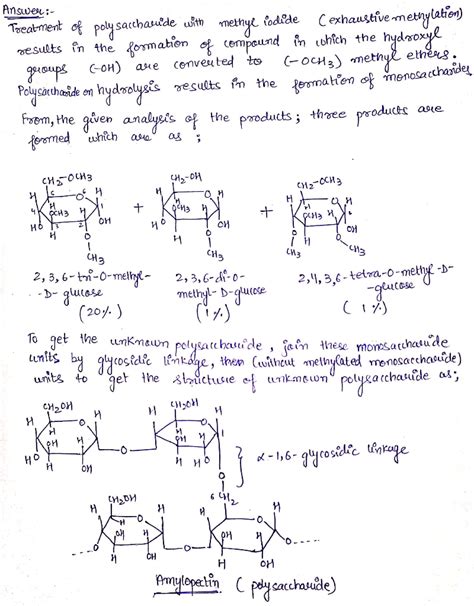 Answer:-
Treatment of polysaccharide with methyl iodide (exhaustive methylation)
results in the formation of compound in which the hydroxyl
groups (-OH) are converted to (-OCH3) methyl ethers.
Polysaccharide on hydrolysis results in the formation of monosaccharides
From, the given analysis of the products; three products are
formed which are as ;
CH2-OCH3 CH2-OH CH2-OCH3
+ +
2,3,6-tri-O-methyl- 2,3,6-di-O- 2,4,3,6-tetra-O-methyl-D-
-D-glucose methyl-D-glucose -glucose
(20%) (1%) (1%)
To get the unknown polysaccharide, join these monosaccharide
units by glycosidic linkage, then (without methylated monosaccharide)
units to get the structure of unknown polysaccharide as;
CH2OH CH2OH
α-1,6-glycosidic linkage
CH2OH 6CH2
Amylopectin (polysaccharide)